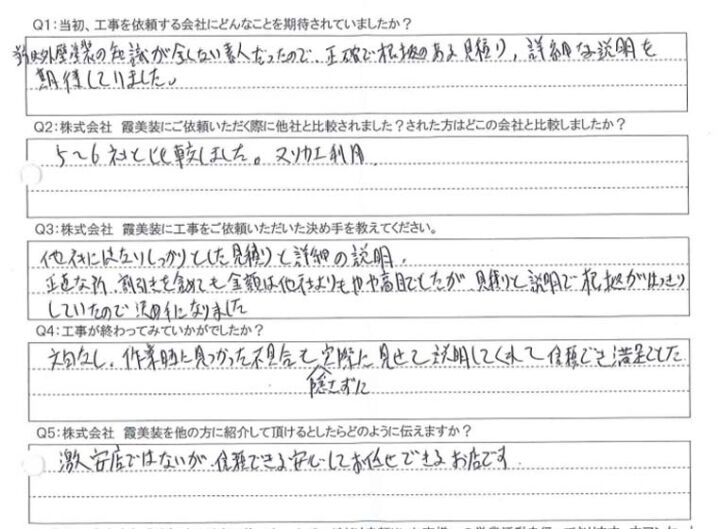 Q1:当初、工事を依頼する会社にどんなことを期待されていましたか?
当初は外壁塗装の知識が全くない素人だったので、正確で根拠のある見積り、詳細な説明を
期待していました。
Q2:株式会社 霞美装にご依頼いただく際に他社と比較されました?された方はどこの会社と比較しましたか?
5~6社と比較しました。ヌリカエ利用
Q3:株式会社 霞美装に工事をご依頼いただいた決め手を教えてください。
他社にはないしっかりとした見積りと詳細の説明。
正直な所、割引きを含めても金額は他社よりもやや高目でしたが、見積りと説明で根拠がはっきり
していたので決め手になりました
Q4:工事が終わってみていかがでしたか?
文句なし。作業時に見つかった不具合も実際に見せて説明してくれて信頼でき満足でした
隠さずに
Q5:株式会社 霞美装を他の方に紹介して頂けるとしたらどのように伝えますか?
激安店ではないが、信頼できる安心してお任せできるお店です。